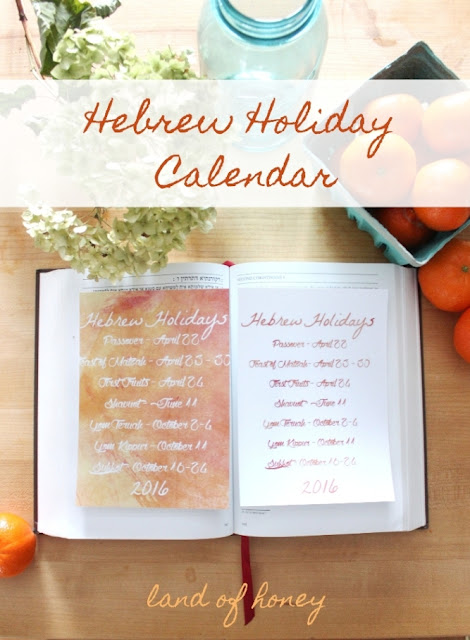 Hebrew Holiday
Calendar
Hebrew Holidays
Passover - April 22
Feast of Matzah - April
First Fruits - April
Shavuot - June 11
Yom Teruah - October
Yom Kippur - October 11
Sukkot - October
2016
Hebrew Holidays
Passover - April 22
Feast of Matzah - April
First Fruits - April
Shavuot - June 11
Yom Teruah - October
Yom Kippur - October 11
Sukkot - October
2016
land of honey